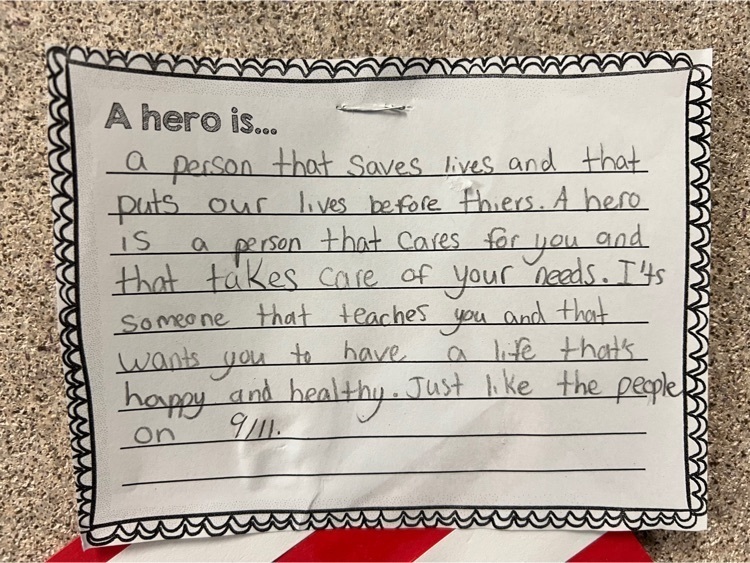 A hero is...
a person that saves lives and that
puts our lives before thiers. A hero
is a person that cares for you and
that takes care of your needs. I'ts
someone that teaches you and that
wants you to have a life that's
happy and healthy. Just like the people
on 9/11.